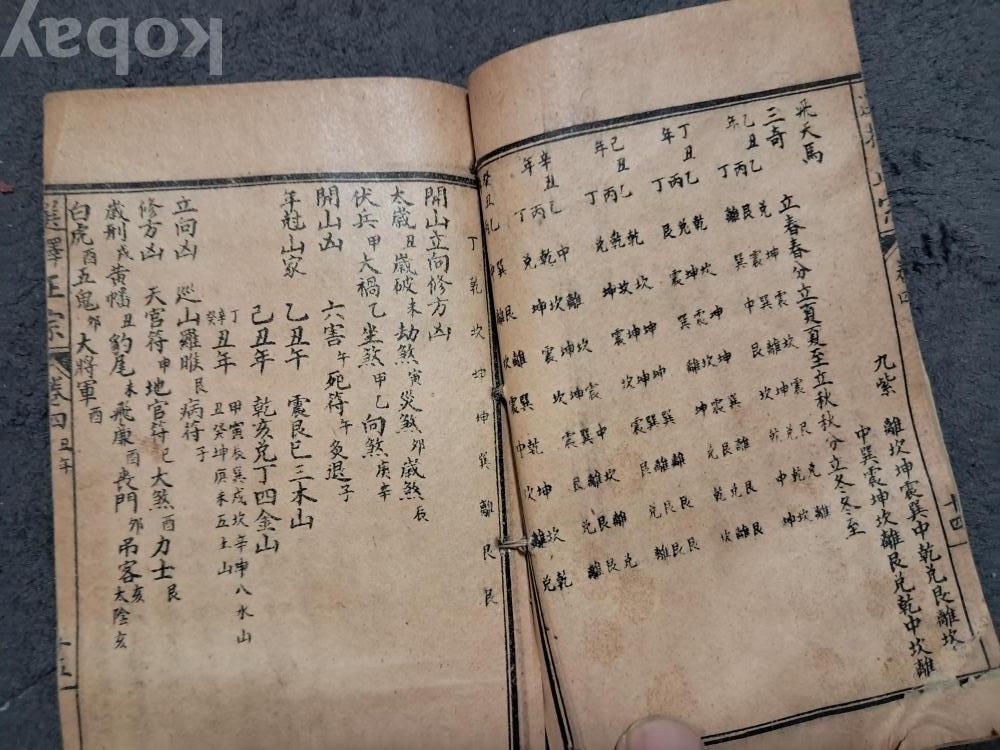 飛天馬 九紫 離坎坤震巽中乾兌艮離坎
中巽震坤坎離艮兌乾中坎離
三奇 立春春分立夏夏至立秋秋分立冬冬至
乙丑年 乙 兌坤震坎震艮兌離
丙 艮震巽離坤兌乾坎
丁 離巽中艮坎乾中坤
丁丑年 乙 乾坎坤坤巽離艮艮
丙 兌坤震坎震艮兌離
丁 艮震巽離坤兌乾坎
己丑年 乙 乾坎坤坤巽離艮艮
丙 乾坎坤坤巽離艮艮
丁 兌坤震坎震艮兌離
辛丑年 乙 中離坎震中坎離兌
丙 乾坎坤坤巽離艮艮
丁 兌坤震坎震艮兌離
癸丑
丁 乾坎坤坤巽離艮艮
開山立向修方凶
太歲丑 歲破未 劫煞寅 災煞卯 歲煞辰
伏兵甲 大禍乙 坐煞甲乙 向煞庚辛
開山凶 六害午 死符午 灸退子
年尅山家 乙丑年 震艮巳三木山
己丑年 乾亥兌丁四金山
丁辛癸丑年 甲寅辰巽戌坎辛申八水山
丑癸坤庚未五土山
立向凶 巡山羅睺艮 病符子
修方凶 天官符申 地官符巳 大煞酉 力士艮
歲刑戌 黃幡丑 豹尾未 飛廉酉 喪門卯 吊客亥 太陰亥
白虎酉 五鬼卯 大將軍酉
選擇正宗 卷四 丑年 十五
kobay